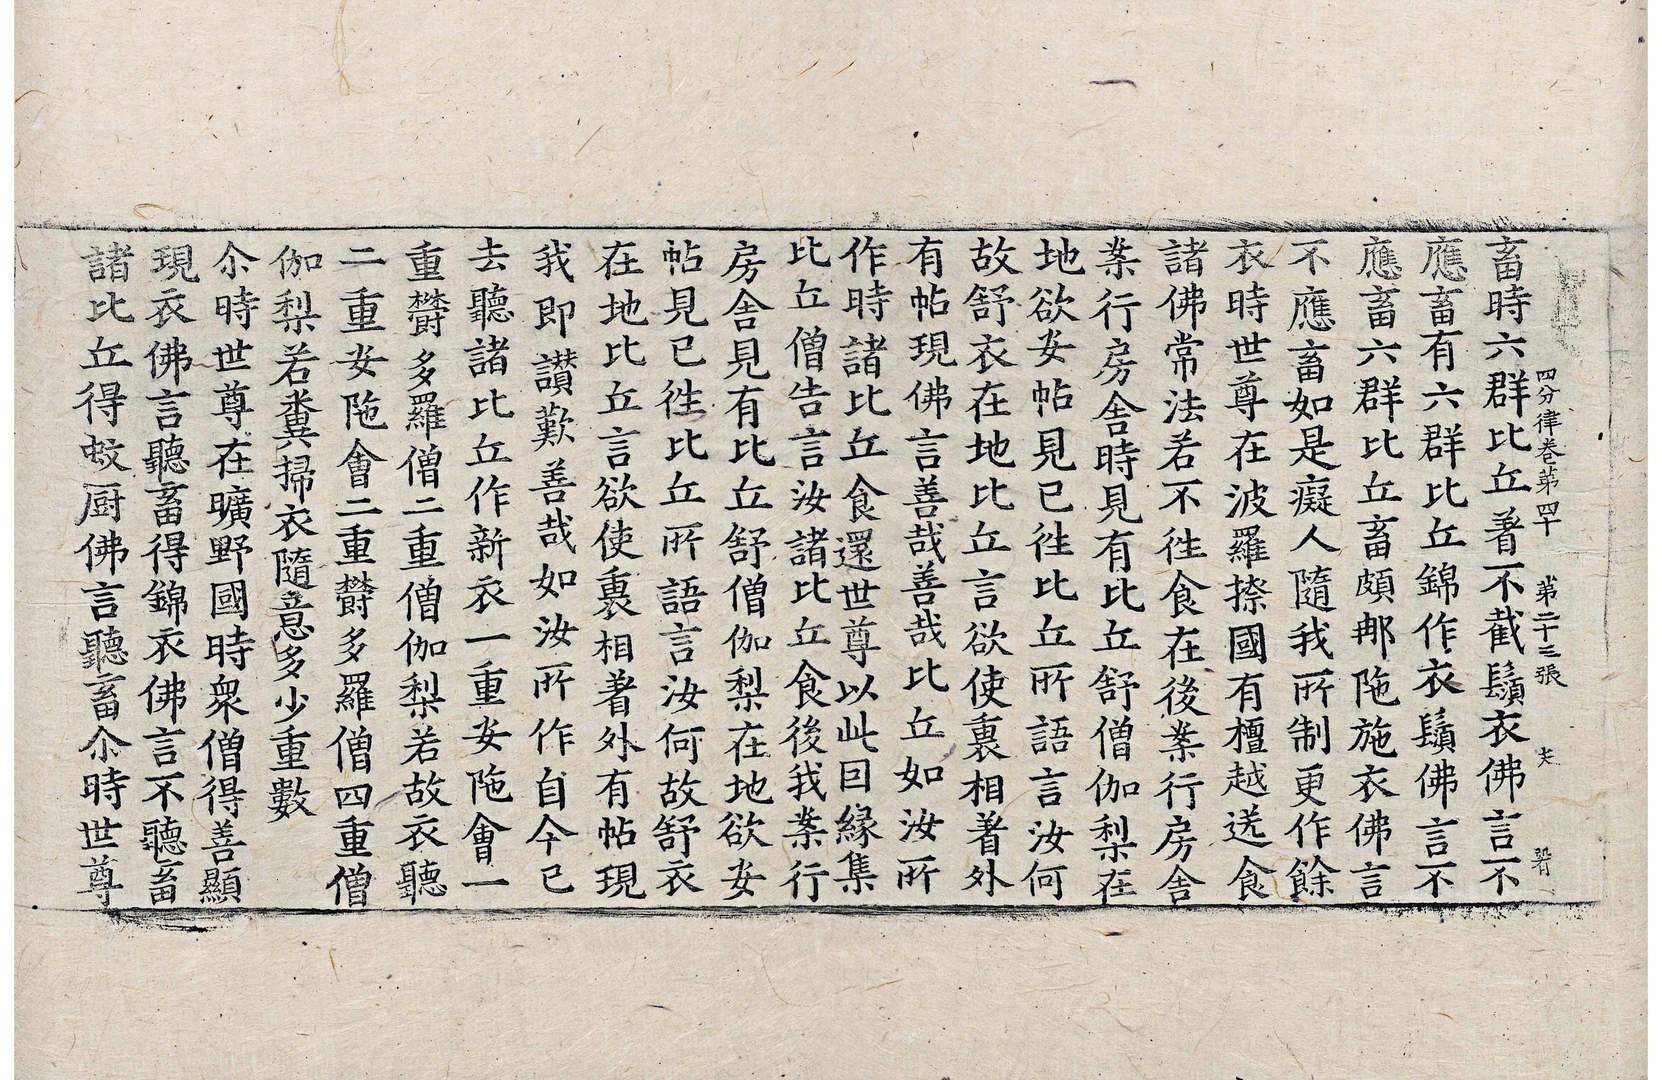 四分律卷第四十 第二十三張 夫
畜時六群比丘著不截鬚衣佛言不
應畜有六群比丘錦作衣鬚佛言不
應畜六群比丘畜頗那陁施衣佛言
不應畜如是癡人隨我所制更作餘
衣時世尊在波羅㮈國有檀越送食
諸佛常法若不徃食在後案行房舍
案行房舍時見有比丘舒僧伽梨在
地欲安帖見已徃比丘所語言汝何
故舒衣在地比丘言欲使裏相著外
有帖現佛言善哉善哉比丘如汝所
作時諸比丘食還世尊以此因緣集
比丘僧告言汝諸比丘食後我案行
房舍見有比丘舒僧伽梨在地欲安
帖見已徃比丘所語言汝何故舒衣
在地比丘言欲使裏相著外有帖現
我即讚歎善哉如汝所作自今已
去聽諸比丘作新衣一重安陁會一
重欝多羅僧二重僧伽梨若故衣聽
二重安陁會二重欝多羅僧四重僧
伽梨若糞掃衣隨意多少重數
尒時世尊在曠野國時衆僧得善顯
現衣佛言聽畜得錦衣佛言不聽畜
諸比丘得蚊厨佛言聽畜尒時世尊